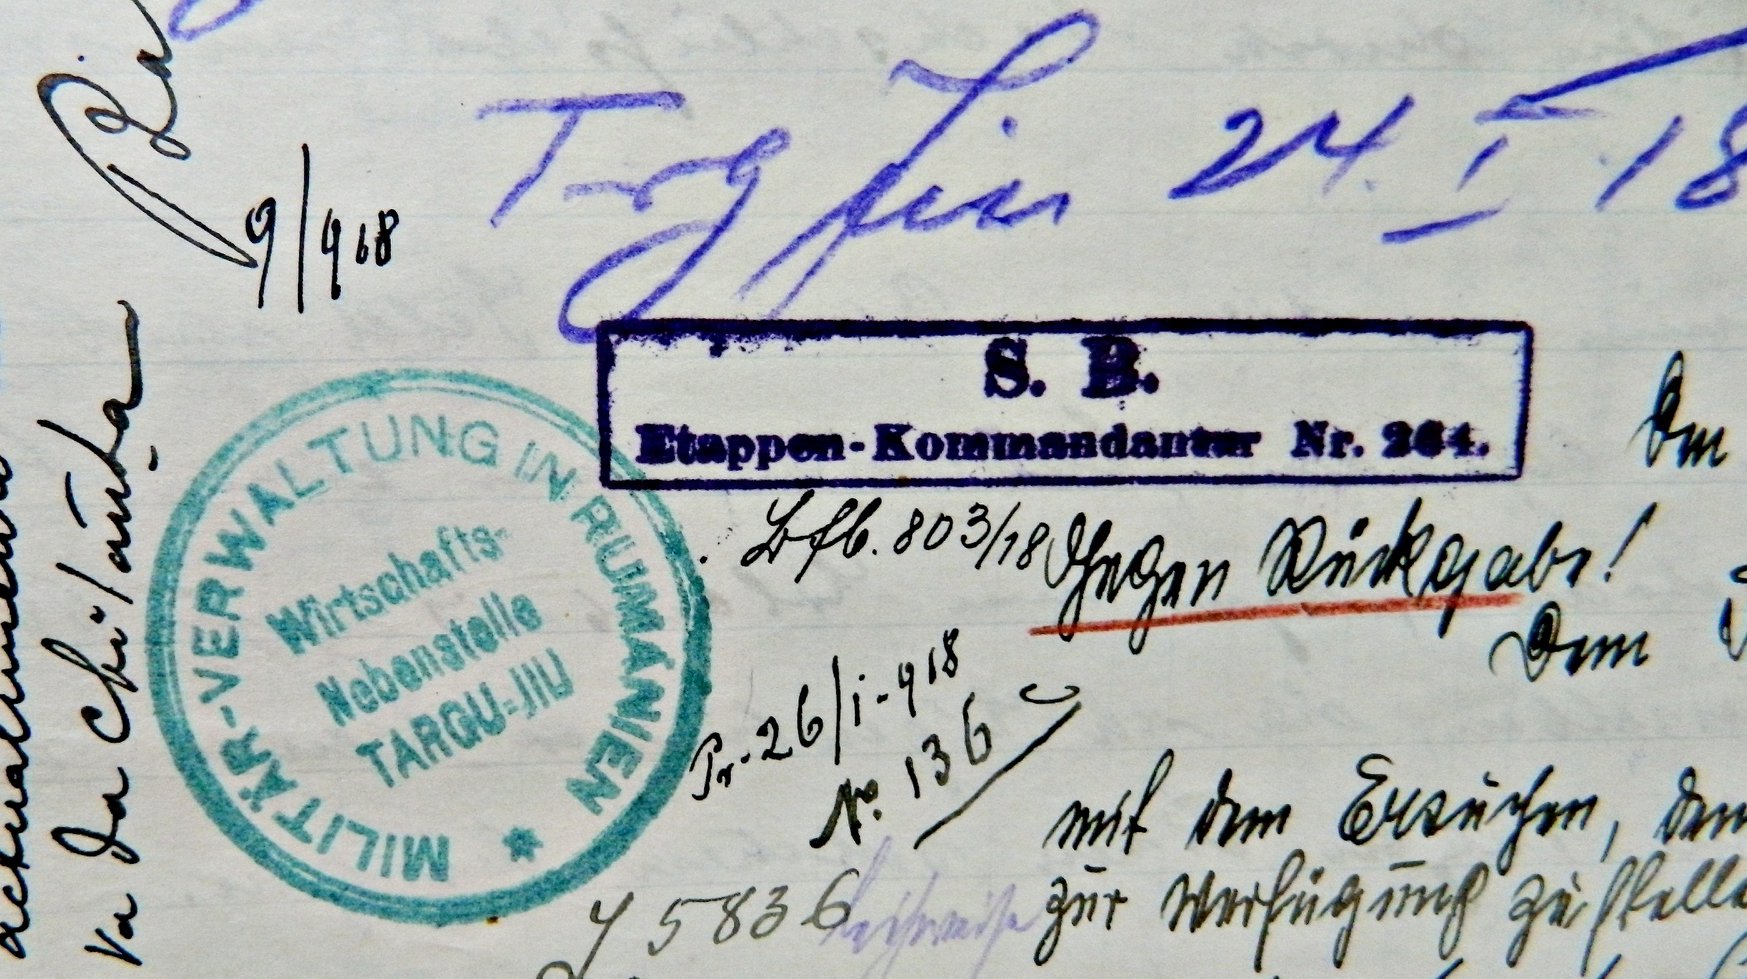 Trg Jiu 24. I. 18
9/918
S. B.
Etappen-Kommandantur Nr. 264.
MILITÄR-VERWALTUNG IN RUMÄNIEN
Wirtschafts-
Nebenstelle
TARGU-JIU
803/18 Gegen Rückgabe!
Dem
Pr. 26/i-918
No. 136
mit dem Ersuchen, den
zur Verfügung zu stelle
75836
va da